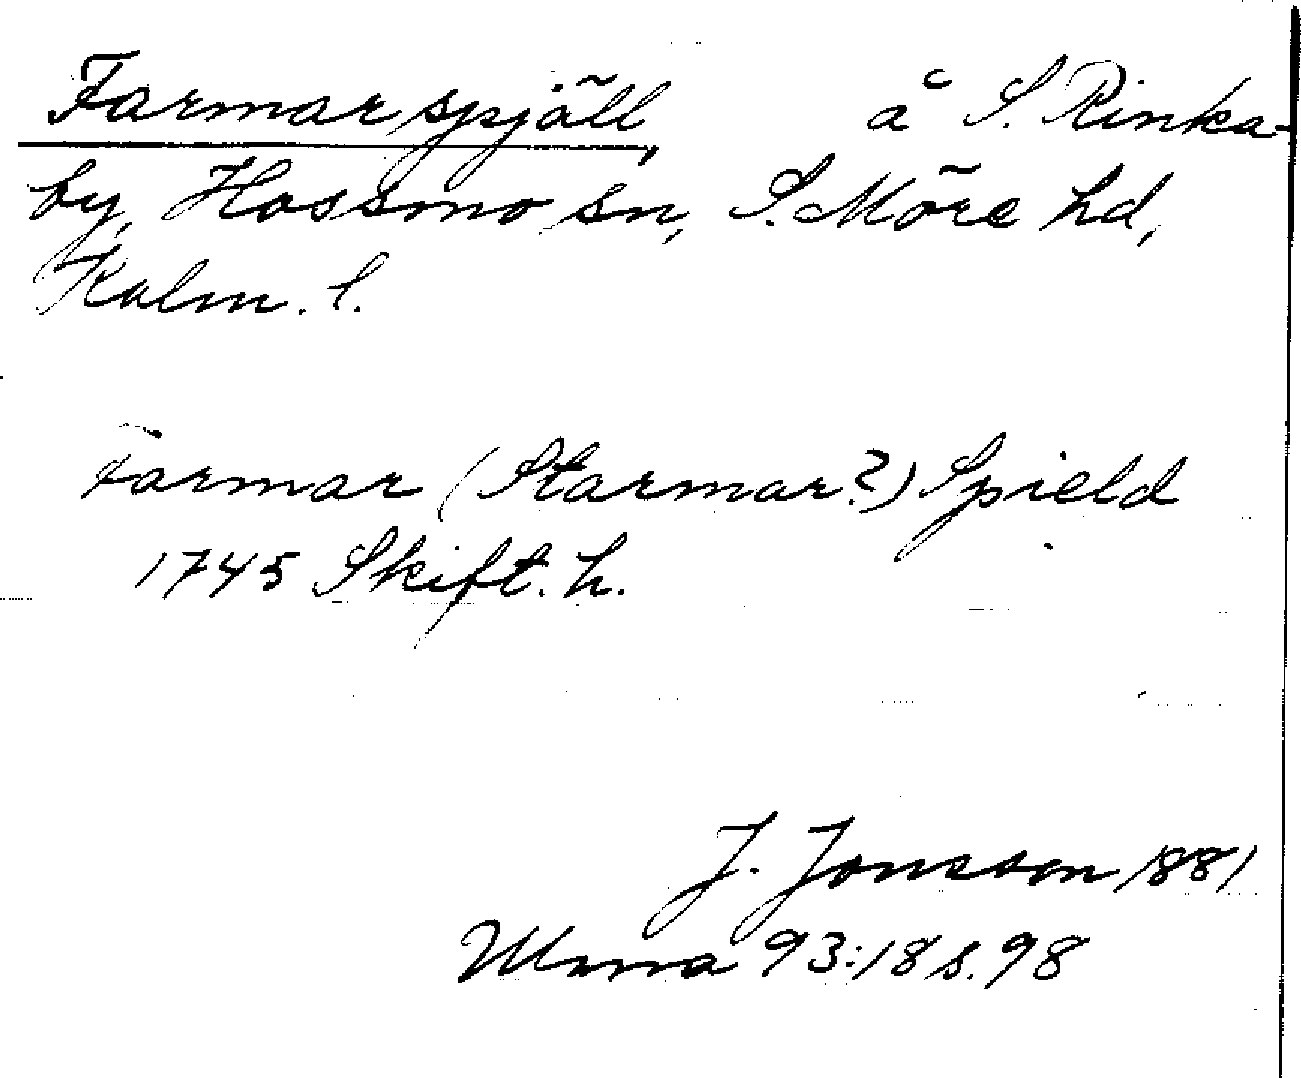 Farmarspjäll, å S. Rinka-
by, Hossmo sn, S. Möre hd,
Kalm. l.
Farmar (Starmar?) Spield
1745 Skift. h.
J. Jonsson 1881
Ulma 93:18 s. 98